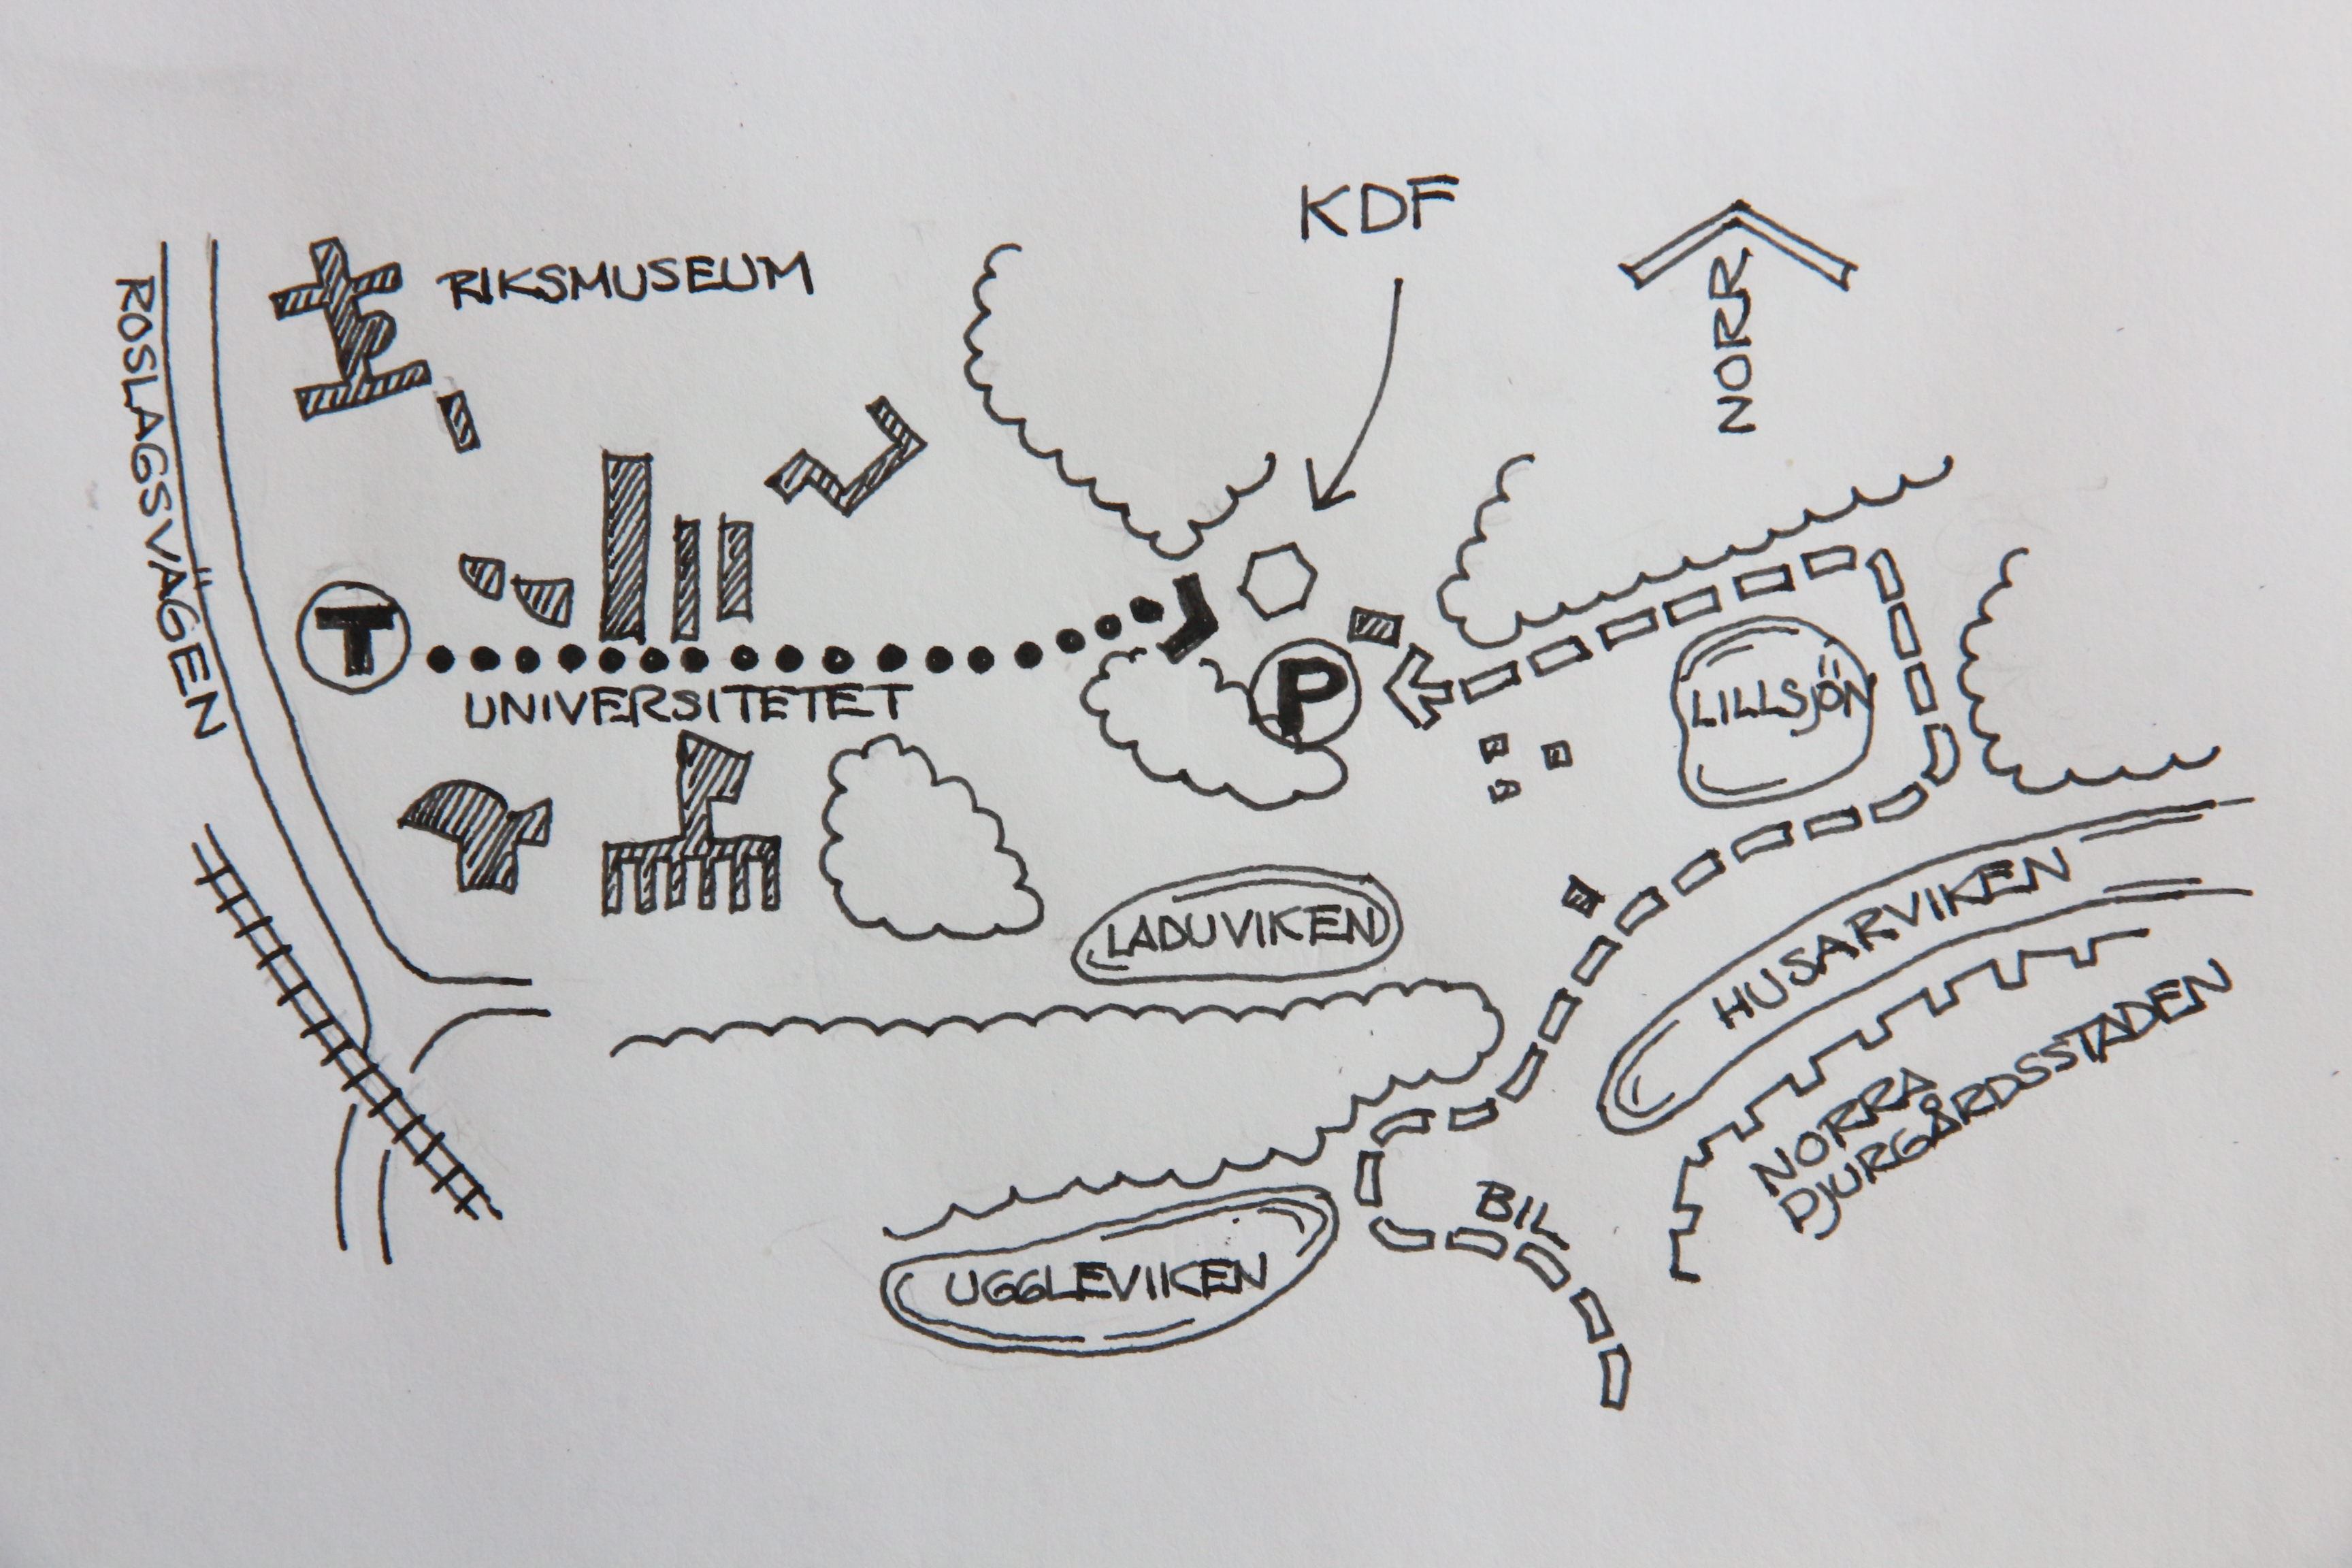 KDF
NORR
RIKSMUSEUM
ROSLAGSVÄGEN
T
UNIVERSITETET
P
LILLSJÖN
LADUVIKEN
HUSARVIKEN
NORRA
DJURGÅRDSSTADEN
BIL
UGGLEVIKEN